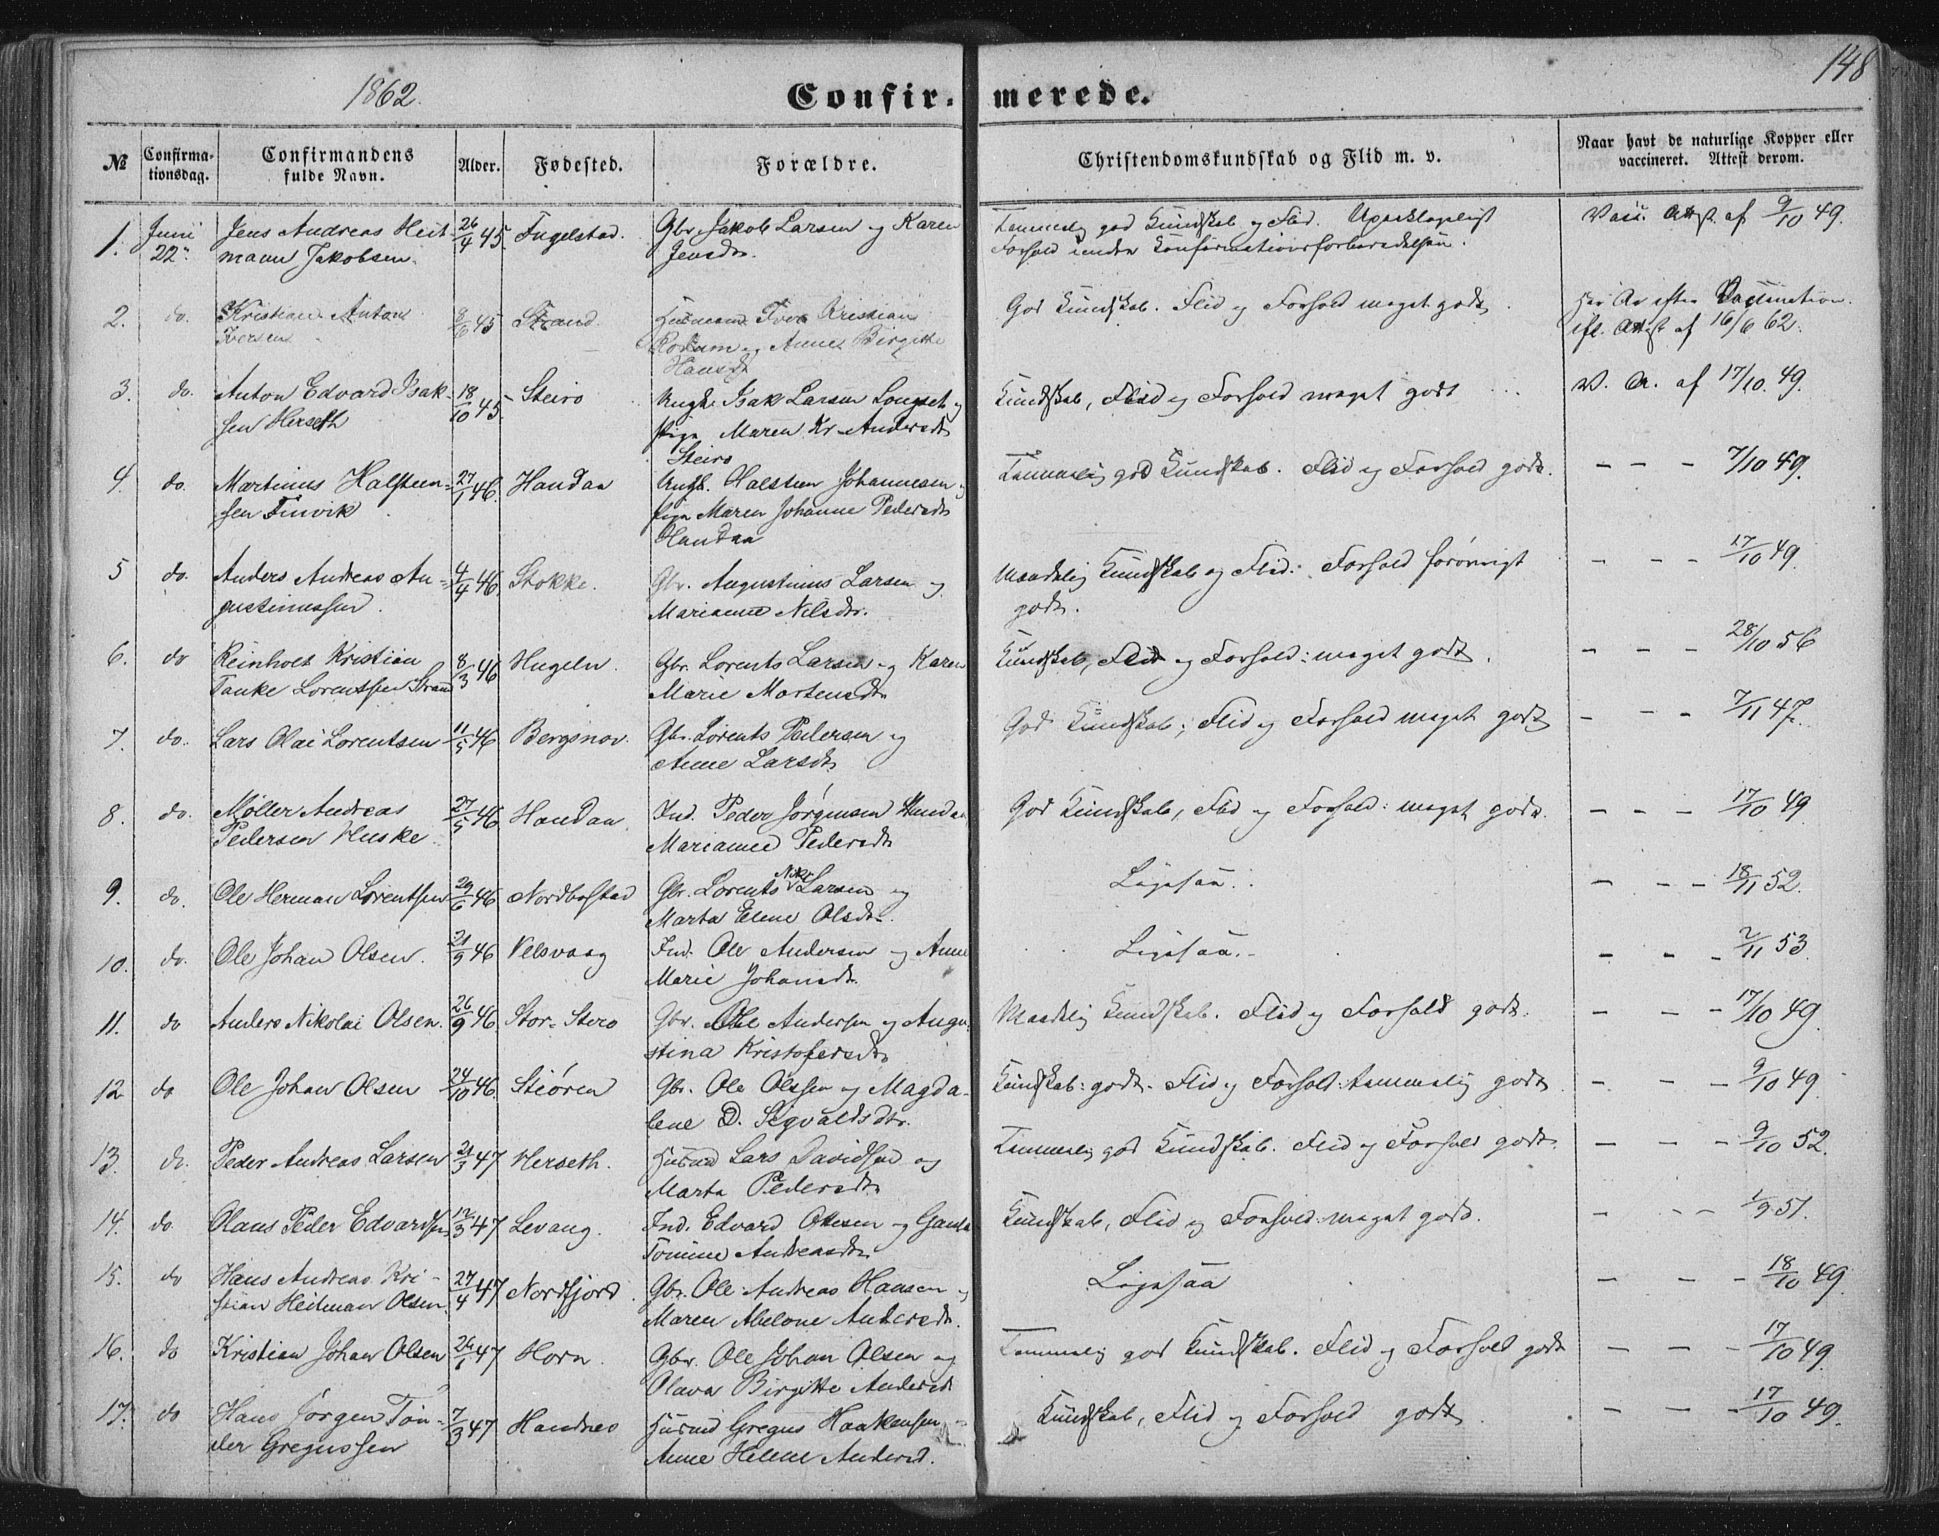 1862.
Confir-merede.
148
№
Confirma-
tionsdag.
Confirmandens
fulde Navn.
Alder.
Fødested.
Forældre.
Christendomskundskab og Flid m. v.
Naar havt de naturlige Kopper eller
vaccineret. Attest derom.
1. Juni 22 Jens Andreas Heit- 26/4 45 Fugelstad. Gbr. Jakob Larsen og Karen Temmelig god Kundskab og Flid. Upaaklageligt Vacc. Attest. af 9/10 49.
mann Jakobsen. Jensdtr. Forhold under Konfirmationsforberedelsen.
2. do. Kristian Anton 8/6 45 Strand. Husmand Iver Kristian God Kundskab. Flid og Forhold meget godt. Har Ar efter Vaccination.
Iversen og Anne Birgitte ifl. Attest af 16/6 62.
Hansdt
3. do Anton Edvard Isak- 18/10 45. Steiro Ungk. Isak Larsen og Kundskab, Flid og Forhold meget godt V. A. af 17/10. 49.
sen Herseth Pige Maren Kr. Andersdt
Steiro
4. do. Martinus Halsteen- 27/1 46. Handaa Ungk. Halsteen Johannesen og Temmelig god Kundskab. Flid og Forhold godt. – – – 7/10 49.
sen Finvik Pige Maren Johanne Pedersdt
Handaa
5 do. Anders Andreas Au- 4/4 46. Stokke. Gbr. Augustinus Larsen og Maadelig Kundskab og Flid. Forhold forøvrigt – – – 17/10 49.
gustinussen. Marianne Nilsdtr. godt.
6. do Reinholt Kristian 8/3 46 Hugeln. Gbr. Lorents Larsen og Karen Kundskab, Flid og Forhold: meget godt. – – – 28/10 56
Tanke Lorentsen Strand Marie Mortensdt.
7. do. Lars Olai Lorentsen 11/5 46 Bergsnov. Gbr. Lorents Pedersen og God Kundskab; Flid og Forhold meget godt – – – 7/11 47.
Anne Larsdt.
8. do. Møller Andreas 27/5 46 Handaa Ind. Peder Jørgensen Handaa God Kundskab, Flid og Forhold: meget godt. – – – 17/10 49
Pedersen Huske Marianne Pedersdt
9. do. Ole Herman Lorentsen 29/6 46 Nordbostad Gbr. Lorents Larsen og Ligesaa. – – – 18/11 52.
Marta Elene Olsdt.
10. do. Ole Johan Olsen. 21/9 46 Velsvaag Ind. Ole Andersen og Anne Ligesaa. – – – 2/11 53.
Marie Johansdt.
11. do Anders Nikolai Olsen. 26/9 46. Stor-Stero Gbr. Ole Andersen og Augu- Maadelig Kundskab. Flid og Forhold godt. – – – 17/10 49.
stina Kristofersdtr
12 do Ole Johan Olsen 24/10 46. Stiøren Gbr. Ole Olssen og Magda- Kundskab: godt. Flid og Forhold: temmelig godt – – – 9/10 49.
lene D. Sigvaldsdtr.
13. do. Peder Andreas Larsen 21/3 47 Herseth. Husmd Lars Davidsen og Temmelig god Kundskab. Flid og Forhold godt – – – 9/10 52.
Marta Pedersdt
14. do Olaus Peder Edvardsen 12/3 47 Levang. Ind. Edvard Ottesen og Kundskab, Flid og Forhold: meget godt. – – – 1/9 51.
Tomine Andreasdt.
15. do Hans Andreas Kri- 27/4 47 Nordfjord. Gbr. Ole Andreas Hansen og Ligesaa – – – 18/10 49.
stian Heitman Olsen. Maren Abelone Andersdt.
16. do Kristian Johan Olsen 26/1 47 Horn. Gbr. Ole Johan Olsen og Temmelig god Kundskab. Flid og Forhold godt – – – 17/10 49.
Olava Birgitte Andersdt
17. do Hans Jørgen Tøn- 7/3 47 Handnes Husmd Gregus Haakensen Kundskab, Flid og Forhold godt. – – – 17/10 49.
der Gregussen Anne Helene Andersd.